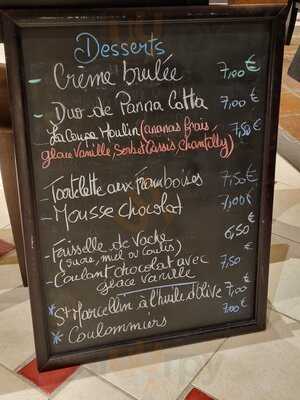 Desserts
- Crème brulée 7,00€
- Duo de Panna Cotta 7,00€
- La Coupe Moulin (ananas frais 7,50€
glace vanille, Sorbet Cassis, chantilly)
- Tartelette aux framboises 7,50€
- Mousse Chocolat 7,00€
- Faisselle de Vache 6,50€
(sucre, miel ou Coulis)
- Coulant chocolat avec 7,50€
glace vanille
* St Marcellin à l'huile d'olive 7,00€
* Coulommiers 7,00€